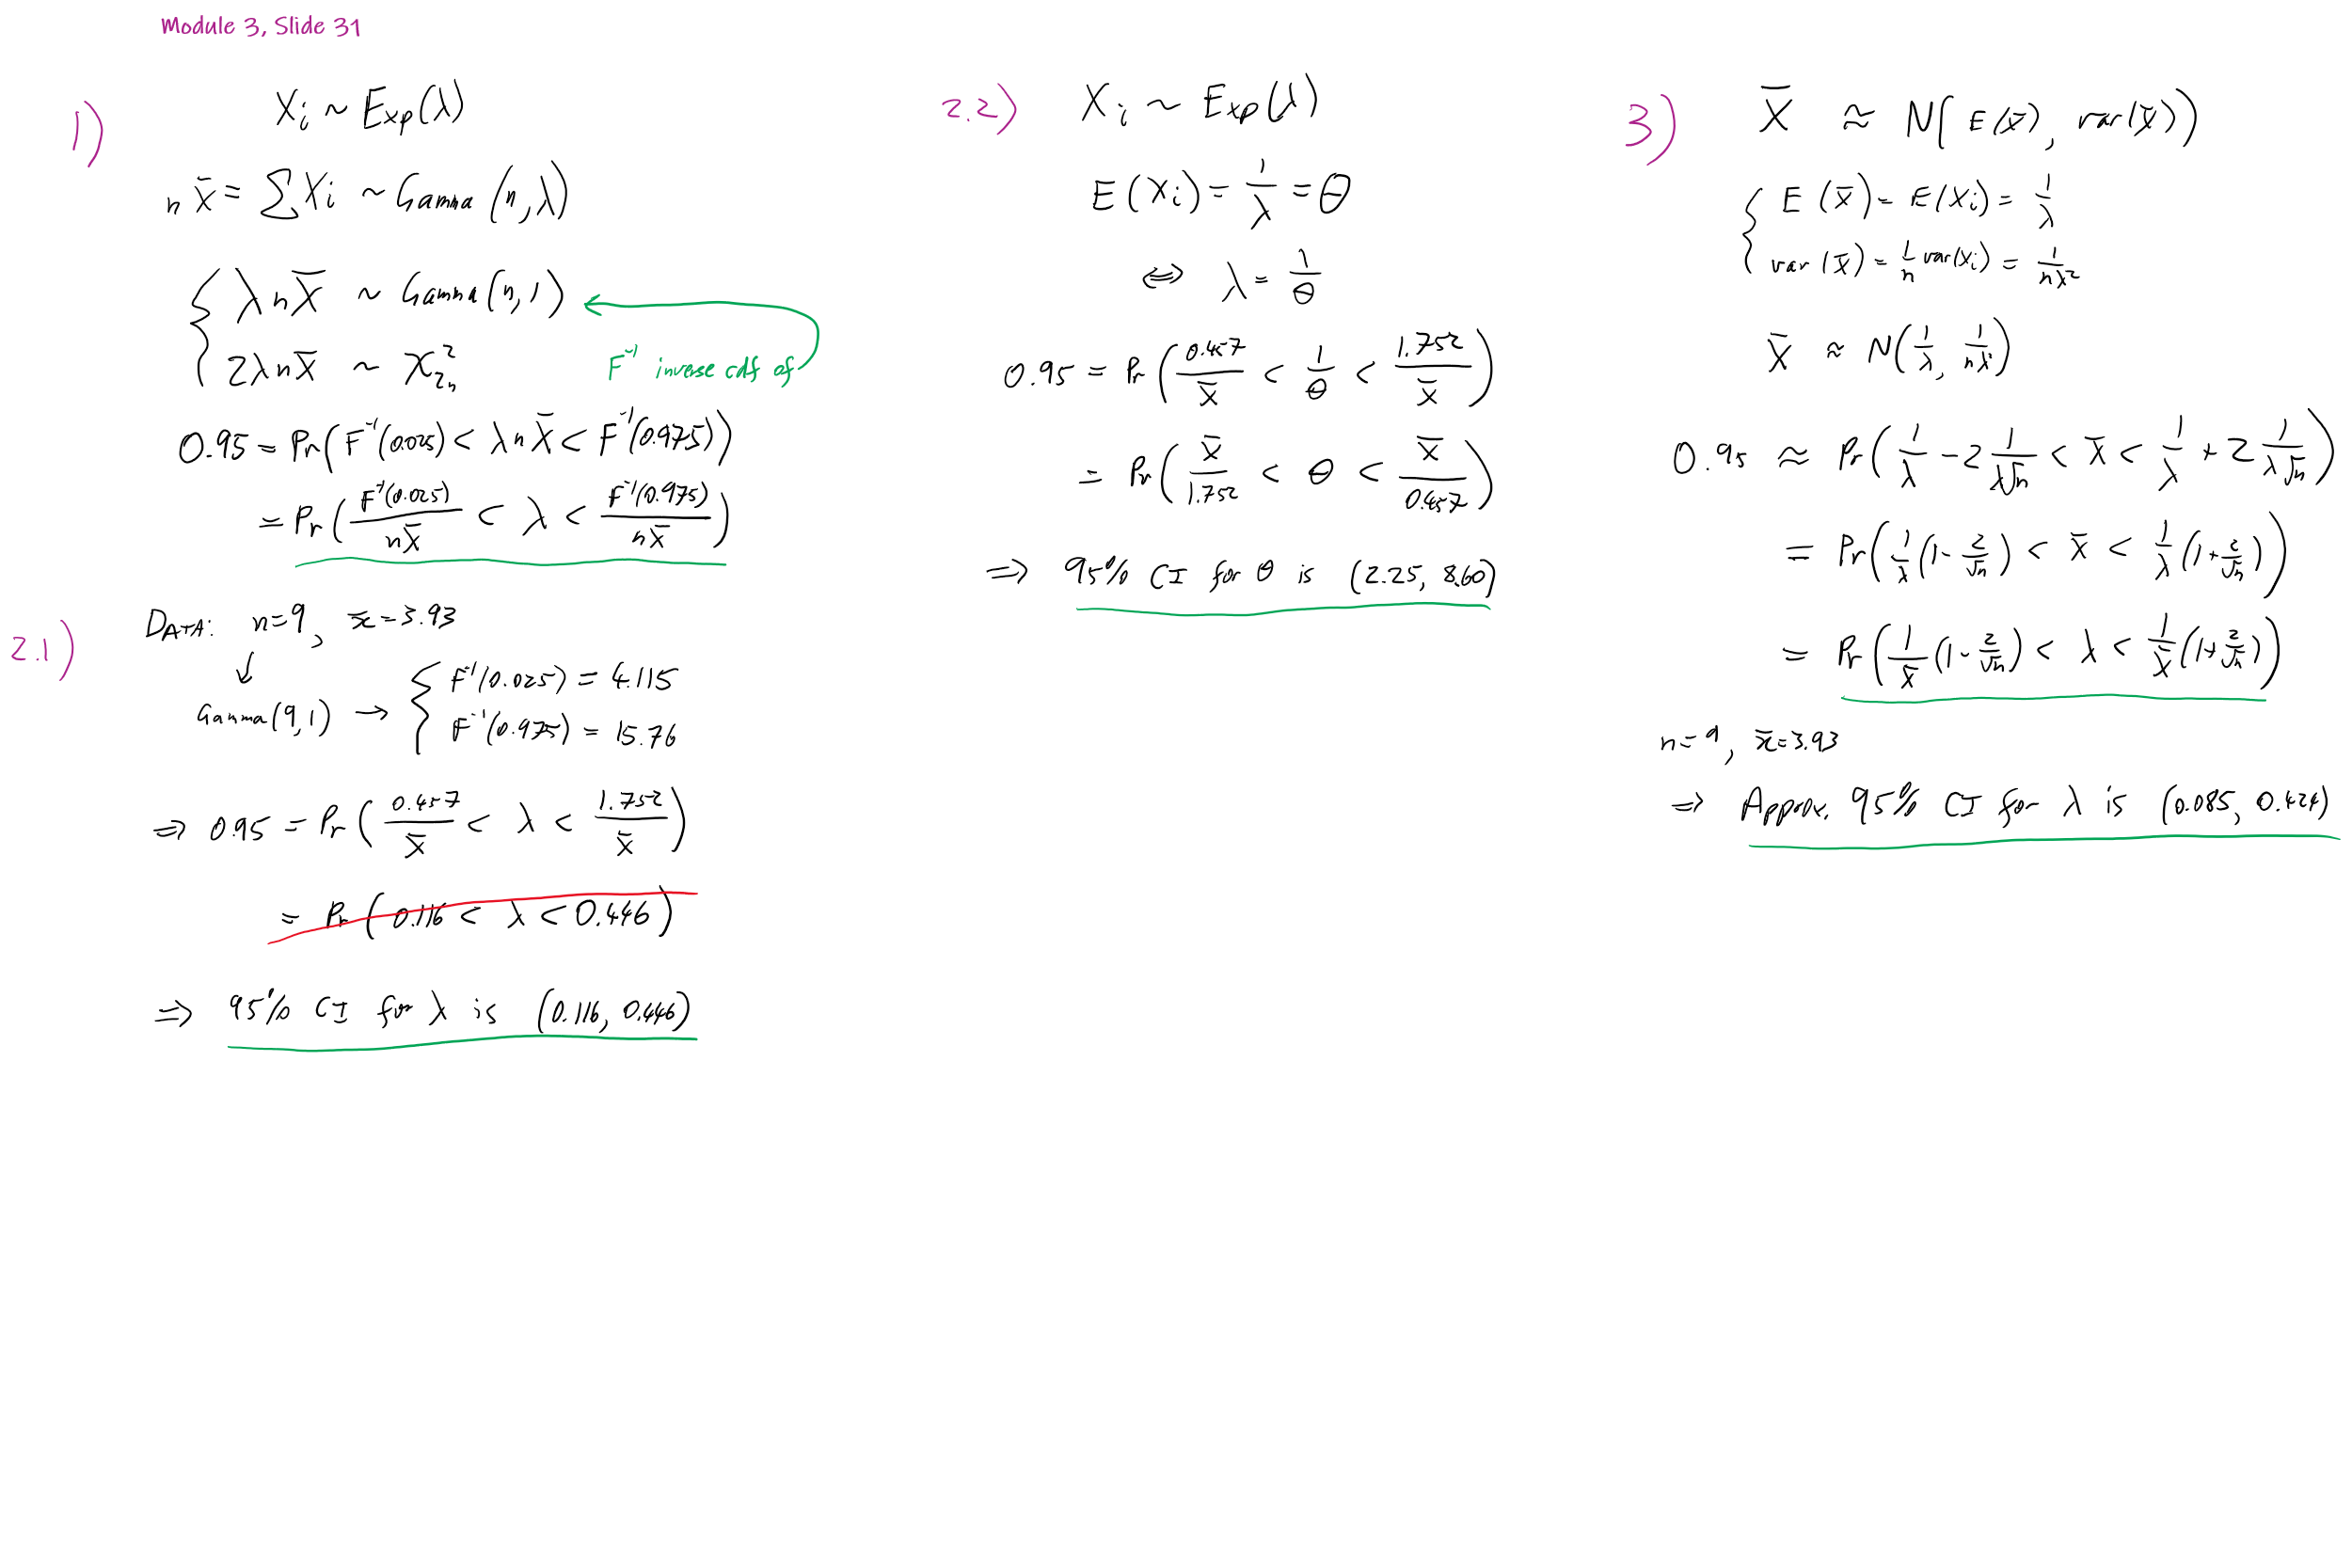 Module 3, Slide 31
1)
Xᵢ ~ Exp(λ)
n X̄ = ∑ Xᵢ ~ Gamma (n, λ)
{ λ n X̄ ~ Gamma (n, 1)
2 λ n X̄ ~ χ²₂ₙ
F⁻¹ inverse cdf of
0.95 = Pr( F⁻¹(0.025) < λ n X̄ < F⁻¹(0.975) )
= Pr ( F⁻¹(0.025) / n X̄ < λ < F⁻¹(0.975) / n X̄ )
2.1)
DATA: n=9, x̄=3.93
↓
Gamma(9,1) → { F⁻¹(0.025) = 4.115
F⁻¹(0.975) = 15.76
⇒ 0.95 = Pr ( 0.457 / X̄ < λ < 1.752 / X̄ )
= Pr ( 0.116 < λ < 0.446 )
⇒ 95% CI for λ is (0.116, 0.446)
2.2)
Xᵢ ~ Exp(λ)
E(Xᵢ) = 1/λ = θ
⇔ λ = 1/θ
0.95 = Pr ( 0.457 / X̄ < 1/θ < 1.752 / X̄ )
= Pr ( X̄ / 1.752 < θ < X̄ / 0.457 )
⇒ 95% CI for θ is (2.25, 8.60)
3)
X̄ ≈ N( E(X̄), var(X̄) )
{ E(X̄) = E(Xᵢ) = 1/λ
var(X̄) = 1/n var(Xᵢ) = 1/nλ²
X̄ ≈ N( 1/λ, 1/nλ² )
0.95 ≈ Pr( 1/λ - 2 1/λ√n < X̄ < 1/λ + 2 1/λ√n )
= Pr( 1/λ (1 - 2/√n) < X̄ < 1/λ (1 + 2/√n) )
= Pr( 1/X̄ (1 - 2/√n) < λ < 1/X̄ (1 + 2/√n) )
n=9, x̄=3.93
⇒ Approx. 95% CI for λ is (0.085, 0.424)